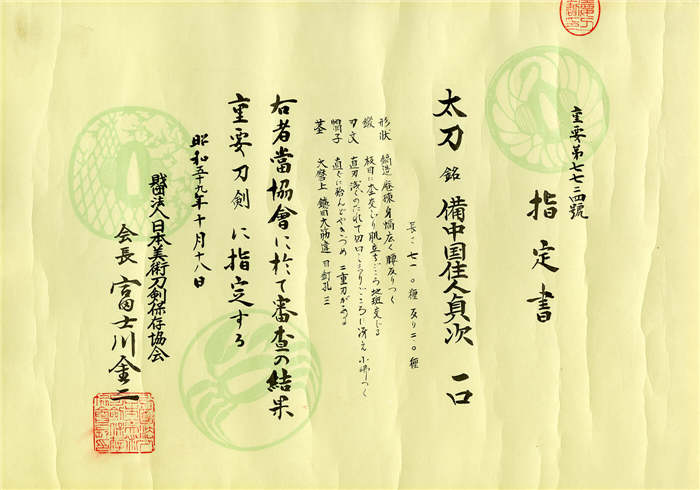 重要第七七三四號
指定書
太刀 銘 備中国住人貞次 一口
長さ 七一・〇糎 反り 二・〇糎
形状 鎬造 庵棟 身幅広く 腰反りつく
鍛 板目に杢交じり 肌立ちごころ 地斑交じる
刃文 直刃 浅くのたれて
帽子 直ぐに 二重刃がかる
茎 大磨上 目釘孔三
右者當協會に於て審査の結果
重要刀剣に指定する
昭和五十九年十月十八日
財団法人日本美術刀剣保存協会
会長 富士川金二